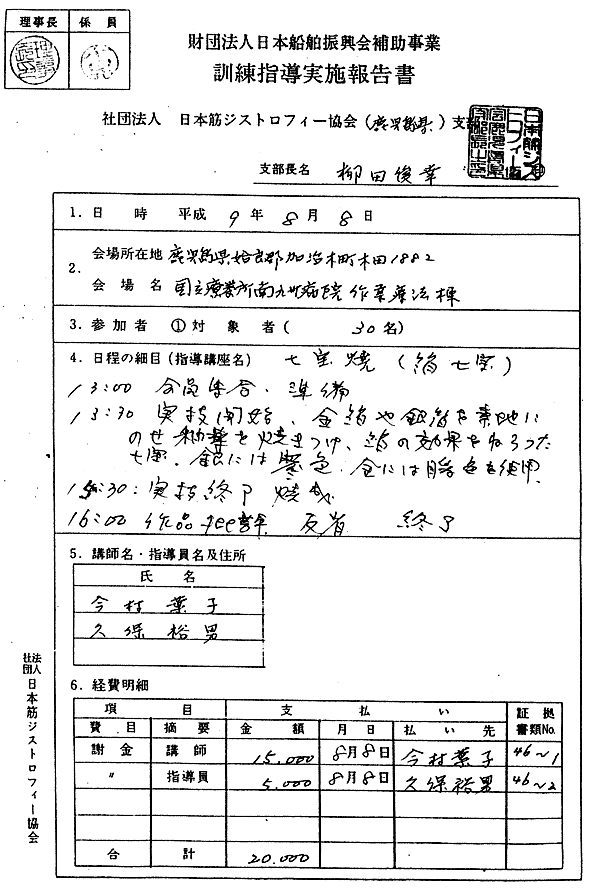 理事長 係員
財団法人日本船舶振興会補助事業
訓練指導実施報告書
社団法人 日本筋ジストロフィー協会(鹿児島県)支部
支部長名 柳田俊幸
1.日 時 平成 9年 8月 8日
2. 会場所在地 鹿児島県姶良郡加治木町木田1882
会場名 国立療養所南九州病院作業療法棟
3.参加者 ①対象者( 30名)
4.日程の細目(指導講座名) 七宝焼(箔七宝)
13:00 全員集合、準備
13:30 実技開始、金箔や銀箔を素地に
のせ釉薬を焼きつけ、箔の効果をねらった
七宝、銀には寒色、金には暖色を使用
15:30:実技終了 焼成
16:00 作品 反省 終了
5.講師名・指導員名及住所
氏名
今村葉子
久保裕男
6.経費明細
項目 支払い 証拠書類No.
費目 摘要 金額 月日 払い先
謝金 講師 15,000 8月8日 今村葉子 46~1
〃 指導員 5,000 8月8日 久保裕男 46~2
合計 20,000
社団法人 日本筋ジストロフィー協会